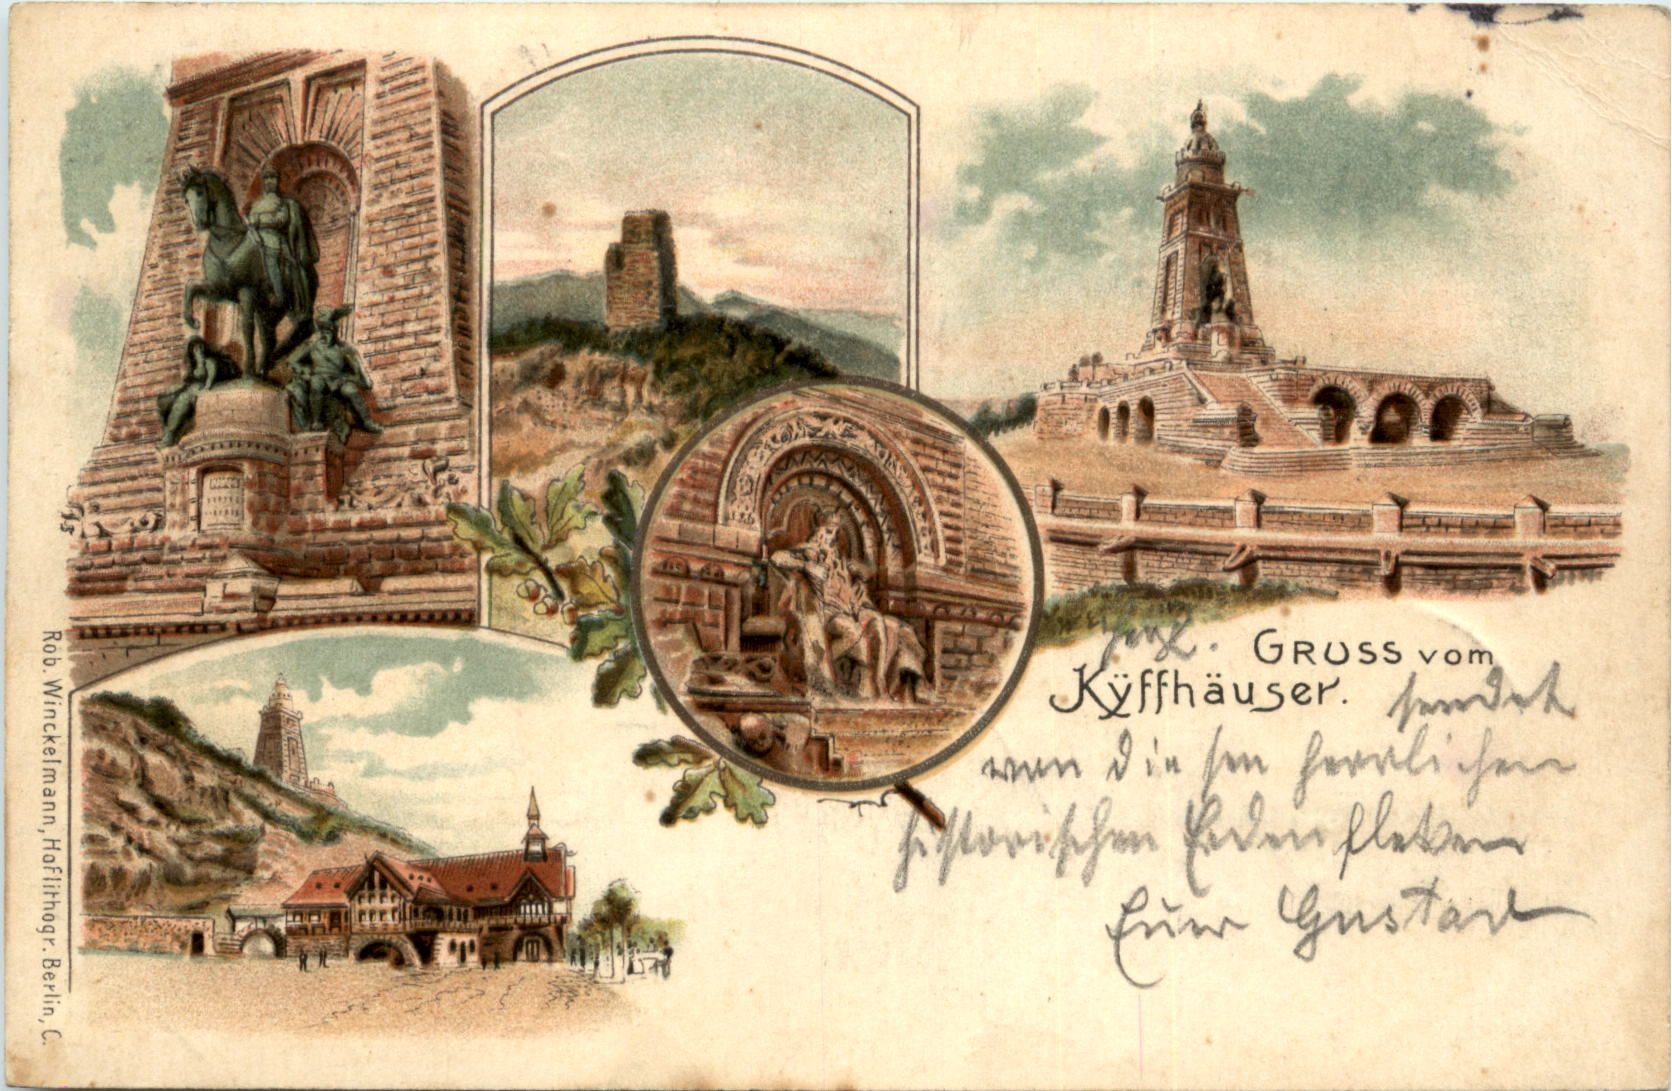 Herzl. GRUSS vom
Kÿffhäuser.
sendet
von diesen herrlichen
historischen Erdenflecken
Euer Gustav
Rob. Winckelmann, Hoflithogr. Berlin, C.